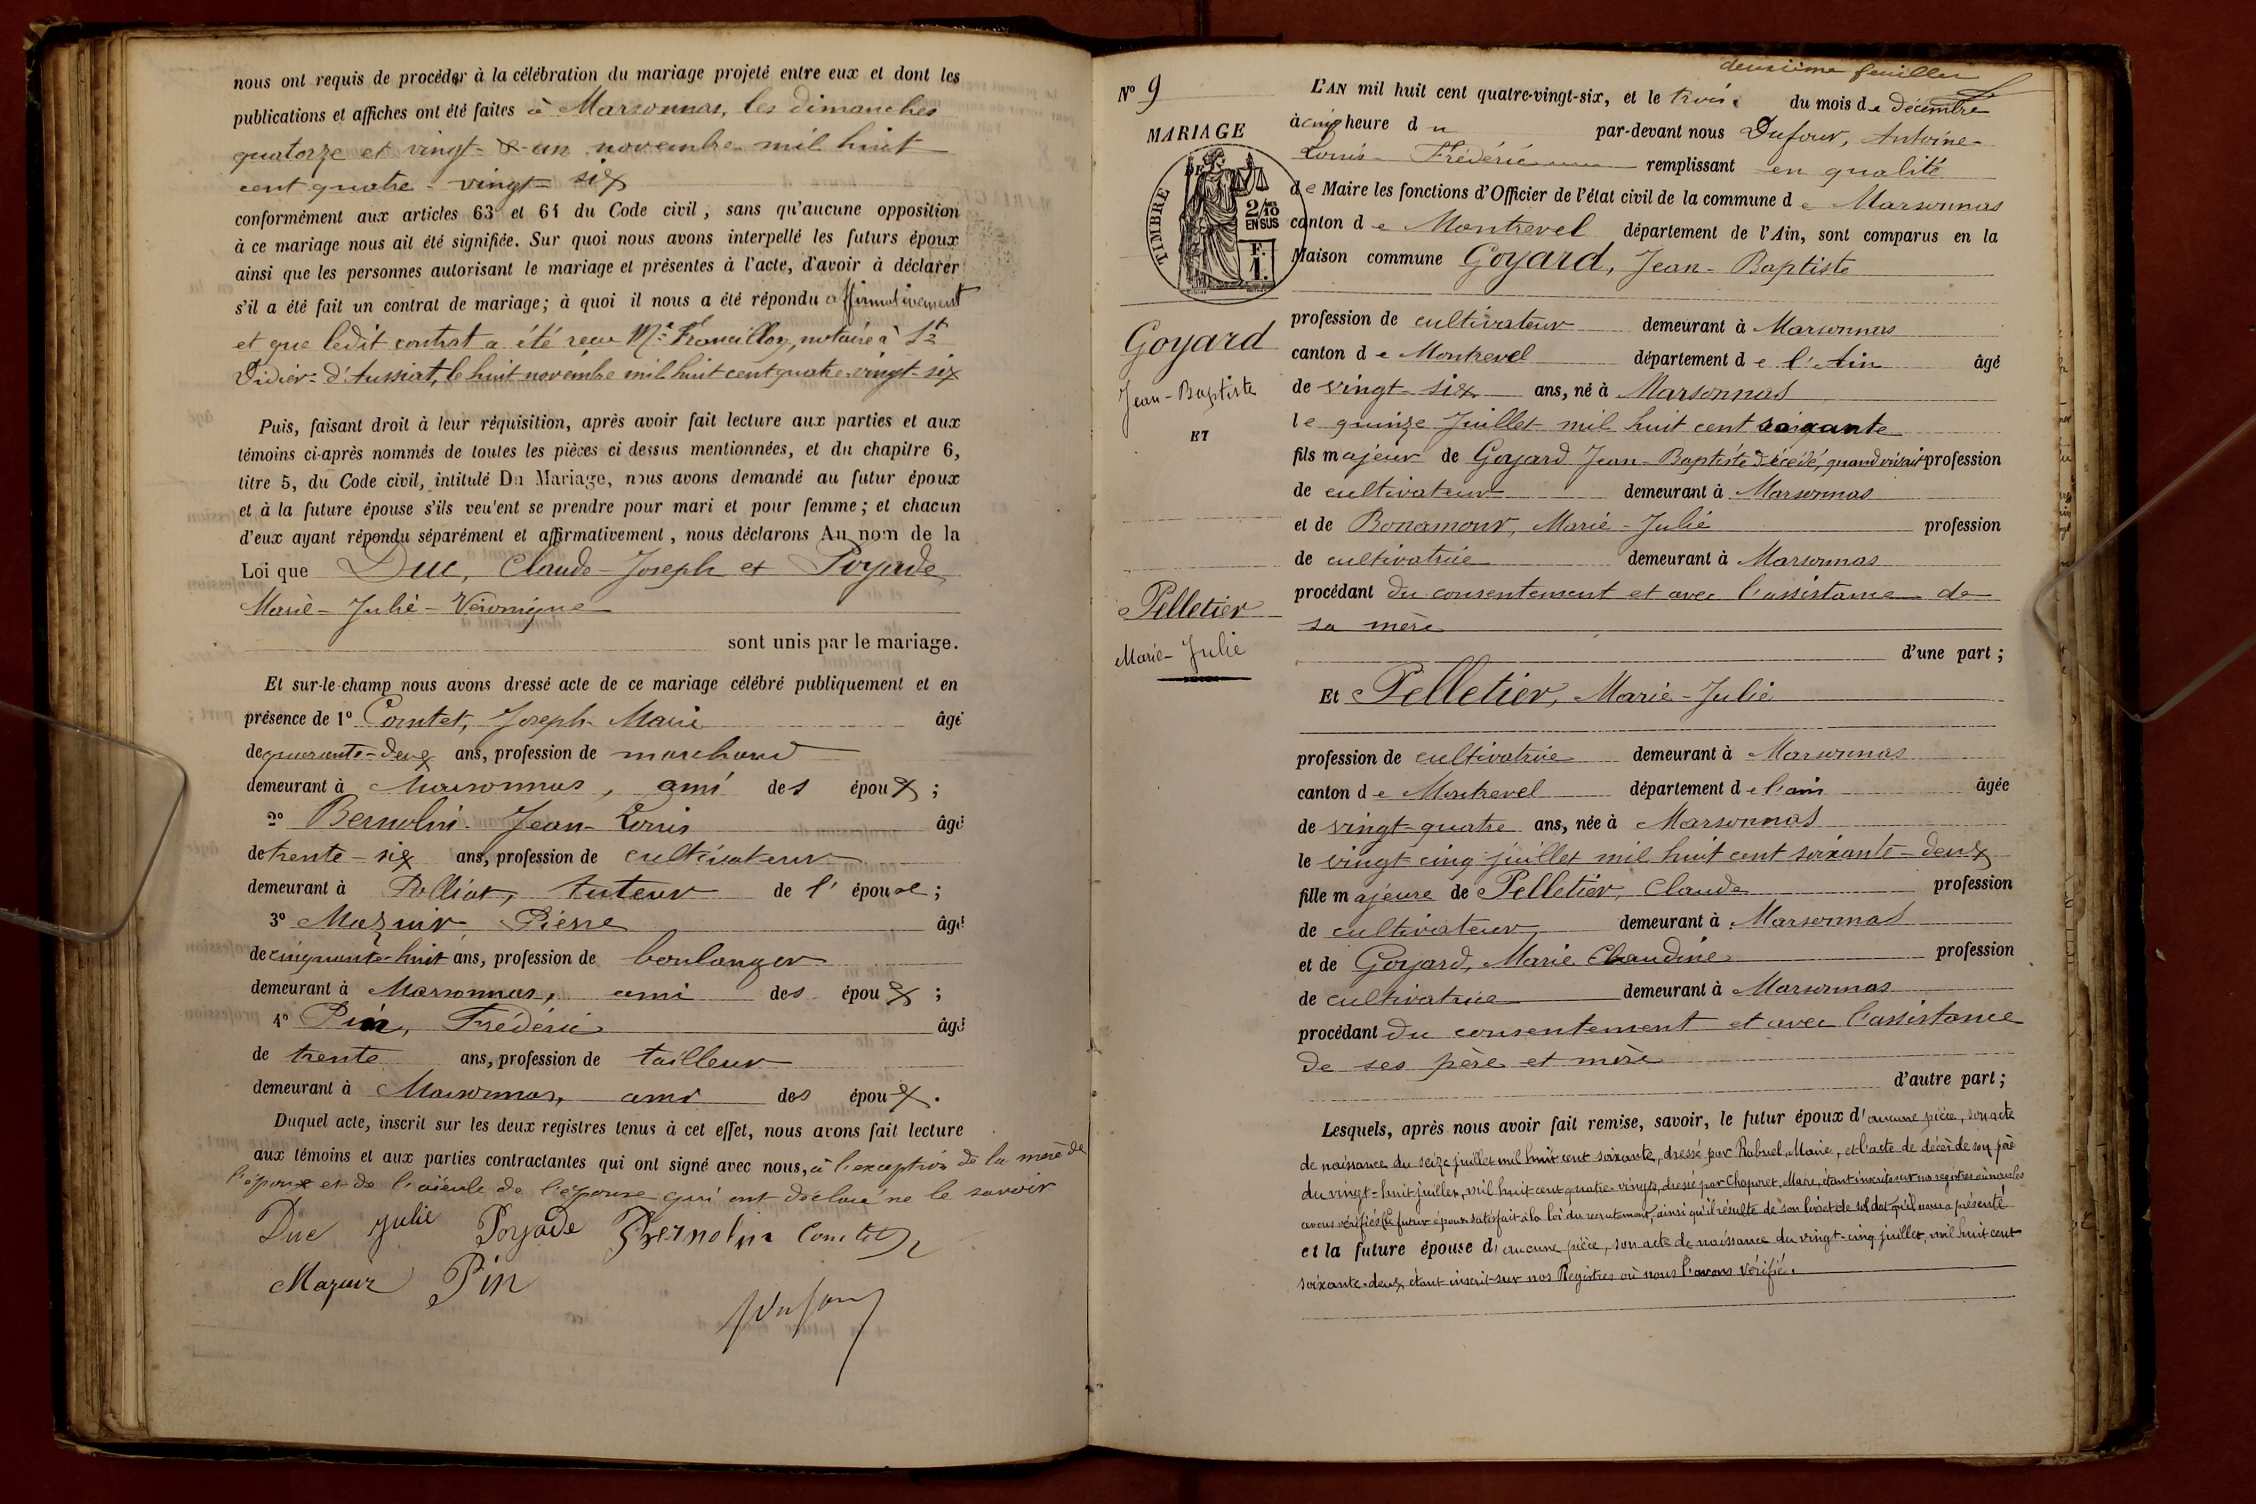 nous ont requis de procéder à la célébration du mariage projeté entre eux et dont les
publications et affiches ont été faites à Marsonnas, les dimanches
quatorze et vingt-un novembre mil huit
cent quatre-vingt-six
conformément aux articles 63 et 64 du Code civil, sans qu'aucune opposition
à ce mariage nous ait été signifiée. Sur quoi nous avons interpellé les futurs époux
ainsi que les personnes autorisant le mariage et présentes à l'acte, d'avoir à déclarer
s'il a été fait un contrat de mariage; à quoi il nous a été répondu affirmativement
et que ledit contrat a été reçu Me Francillon, notaire à St
Didier-d'Aussiat, le huit novembre mil huit cent quatre-vingt-six
Puis, faisant droit à leur réquisition, après avoir fait lecture aux parties et aux
témoins ci-après nommés de toutes les pièces ci dessus mentionnées, et du chapitre 6,
titre 5, du Code civil, intitulé Du Mariage, nous avons demandé au futur époux
et à la future épouse s'ils veulent se prendre pour mari et pour femme; et chacun
d'eux ayant répondu séparément et affirmativement, nous déclarons Au nom de la
Loi que Duc, Claude-Joseph et Poyade,
Marie-Julie-Véronique
sont unis par le mariage.
Et sur-le-champ nous avons dressé acte de ce mariage célébré publiquement et en
présence de 1° Comtet, Joseph-Marie âgé
de quarante-deux ans, profession de marchand
demeurant à Marsonnas, ami des époux;
2° Bernolin Jean-Louis âgé
de trente-six ans, profession de cultivateur
demeurant à Polliat, tuteur de l'épouse;
3° Mazuir Pierre âgé
de cinquante-huit ans, profession de boulanger
demeurant à Marsonnas, ami des époux;
4° Pin, Frédéric âgé
de trente ans, profession de tailleur
demeurant à Marsonnas, ami des époux.
Duquel acte, inscrit sur les deux registres tenus à cet effet, nous avons fait lecture
aux témoins et aux parties contractantes qui ont signé avec nous, à l'exception de la mère de
l'époux et de l'aïeule de l'épouse qui ont déclaré ne le savoir
Duc Julie Poyade Bernolin Comtet
Mazuir Pin
Dufour
deuxième feuillet
N° 9
MARIAGE
TIMBRE
DE
2/10
EN SUS
F.
1.
Goyard
Jean-Baptiste
ET
Pelletier
Marie-Julie
L'AN mil huit cent quatre-vingt-six, et le trois du mois de décembre
à cinq heure d u par-devant nous Dufour, Antoine-
Louis-Frédéric remplissant en qualité
de Maire les fonctions d'Officier de l'état civil de la commune de Marsonnas
canton de Montrevel département de l'Ain, sont comparus en la
Maison commune Goyard, Jean-Baptiste
profession de cultivateur demeurant à Marsonnas
canton de Montrevel département de l'Ain âgé
de vingt-six ans, né à Marsonnas
le quinze Juillet mil huit cent soixante
fils majeur de Goyard Jean-Baptiste décédé, quand vivait profession
de cultivateur demeurant à Marsonnas
et de Bonamour, Marie-Julie profession
de cultivatrice demeurant à Marsonnas
procédant du consentement et avec l'assistance de
sa mère
d'une part;
Et Pelletier, Marie-Julie
profession de cultivatrice demeurant à Marsonnas
canton de Montrevel département de l'ain âgée
de vingt-quatre ans, née à Marsonnas
le vingt cinq juillet mil huit cent soixante-deux
fille majeure de Pelletier, Claude profession
de cultivateur demeurant à Marsonnas
et de Goyard, Marie Claudine profession
de cultivatrice demeurant à Marsonnas
procédant du consentement et avec l'assistance
de ses père et mère
d'autre part;
Lesquels, après nous avoir fait remise, savoir, le futur époux d'aucune pièce, son acte
de naissance du seize juillet mil huit cent soixante, dressé par Rabuel, Maire, et l'acte de décès de son père
du vingt-huit juillet, mil huit cent quatre-vingts, dressé par Chaponet, Maire, étant inscrits sur nos registres où nous les
avons vérifiés, le futur époux satisfait à la loi du recrutement, ainsi qu'il résulte de son livret de soldat qu'il nous a présenté
et la future épouse d'aucune pièce, son acte de naissance du vingt-cinq juillet, mil huit cent
soixante-deux, étant inscrit sur nos Registres où nous l'avons vérifié.